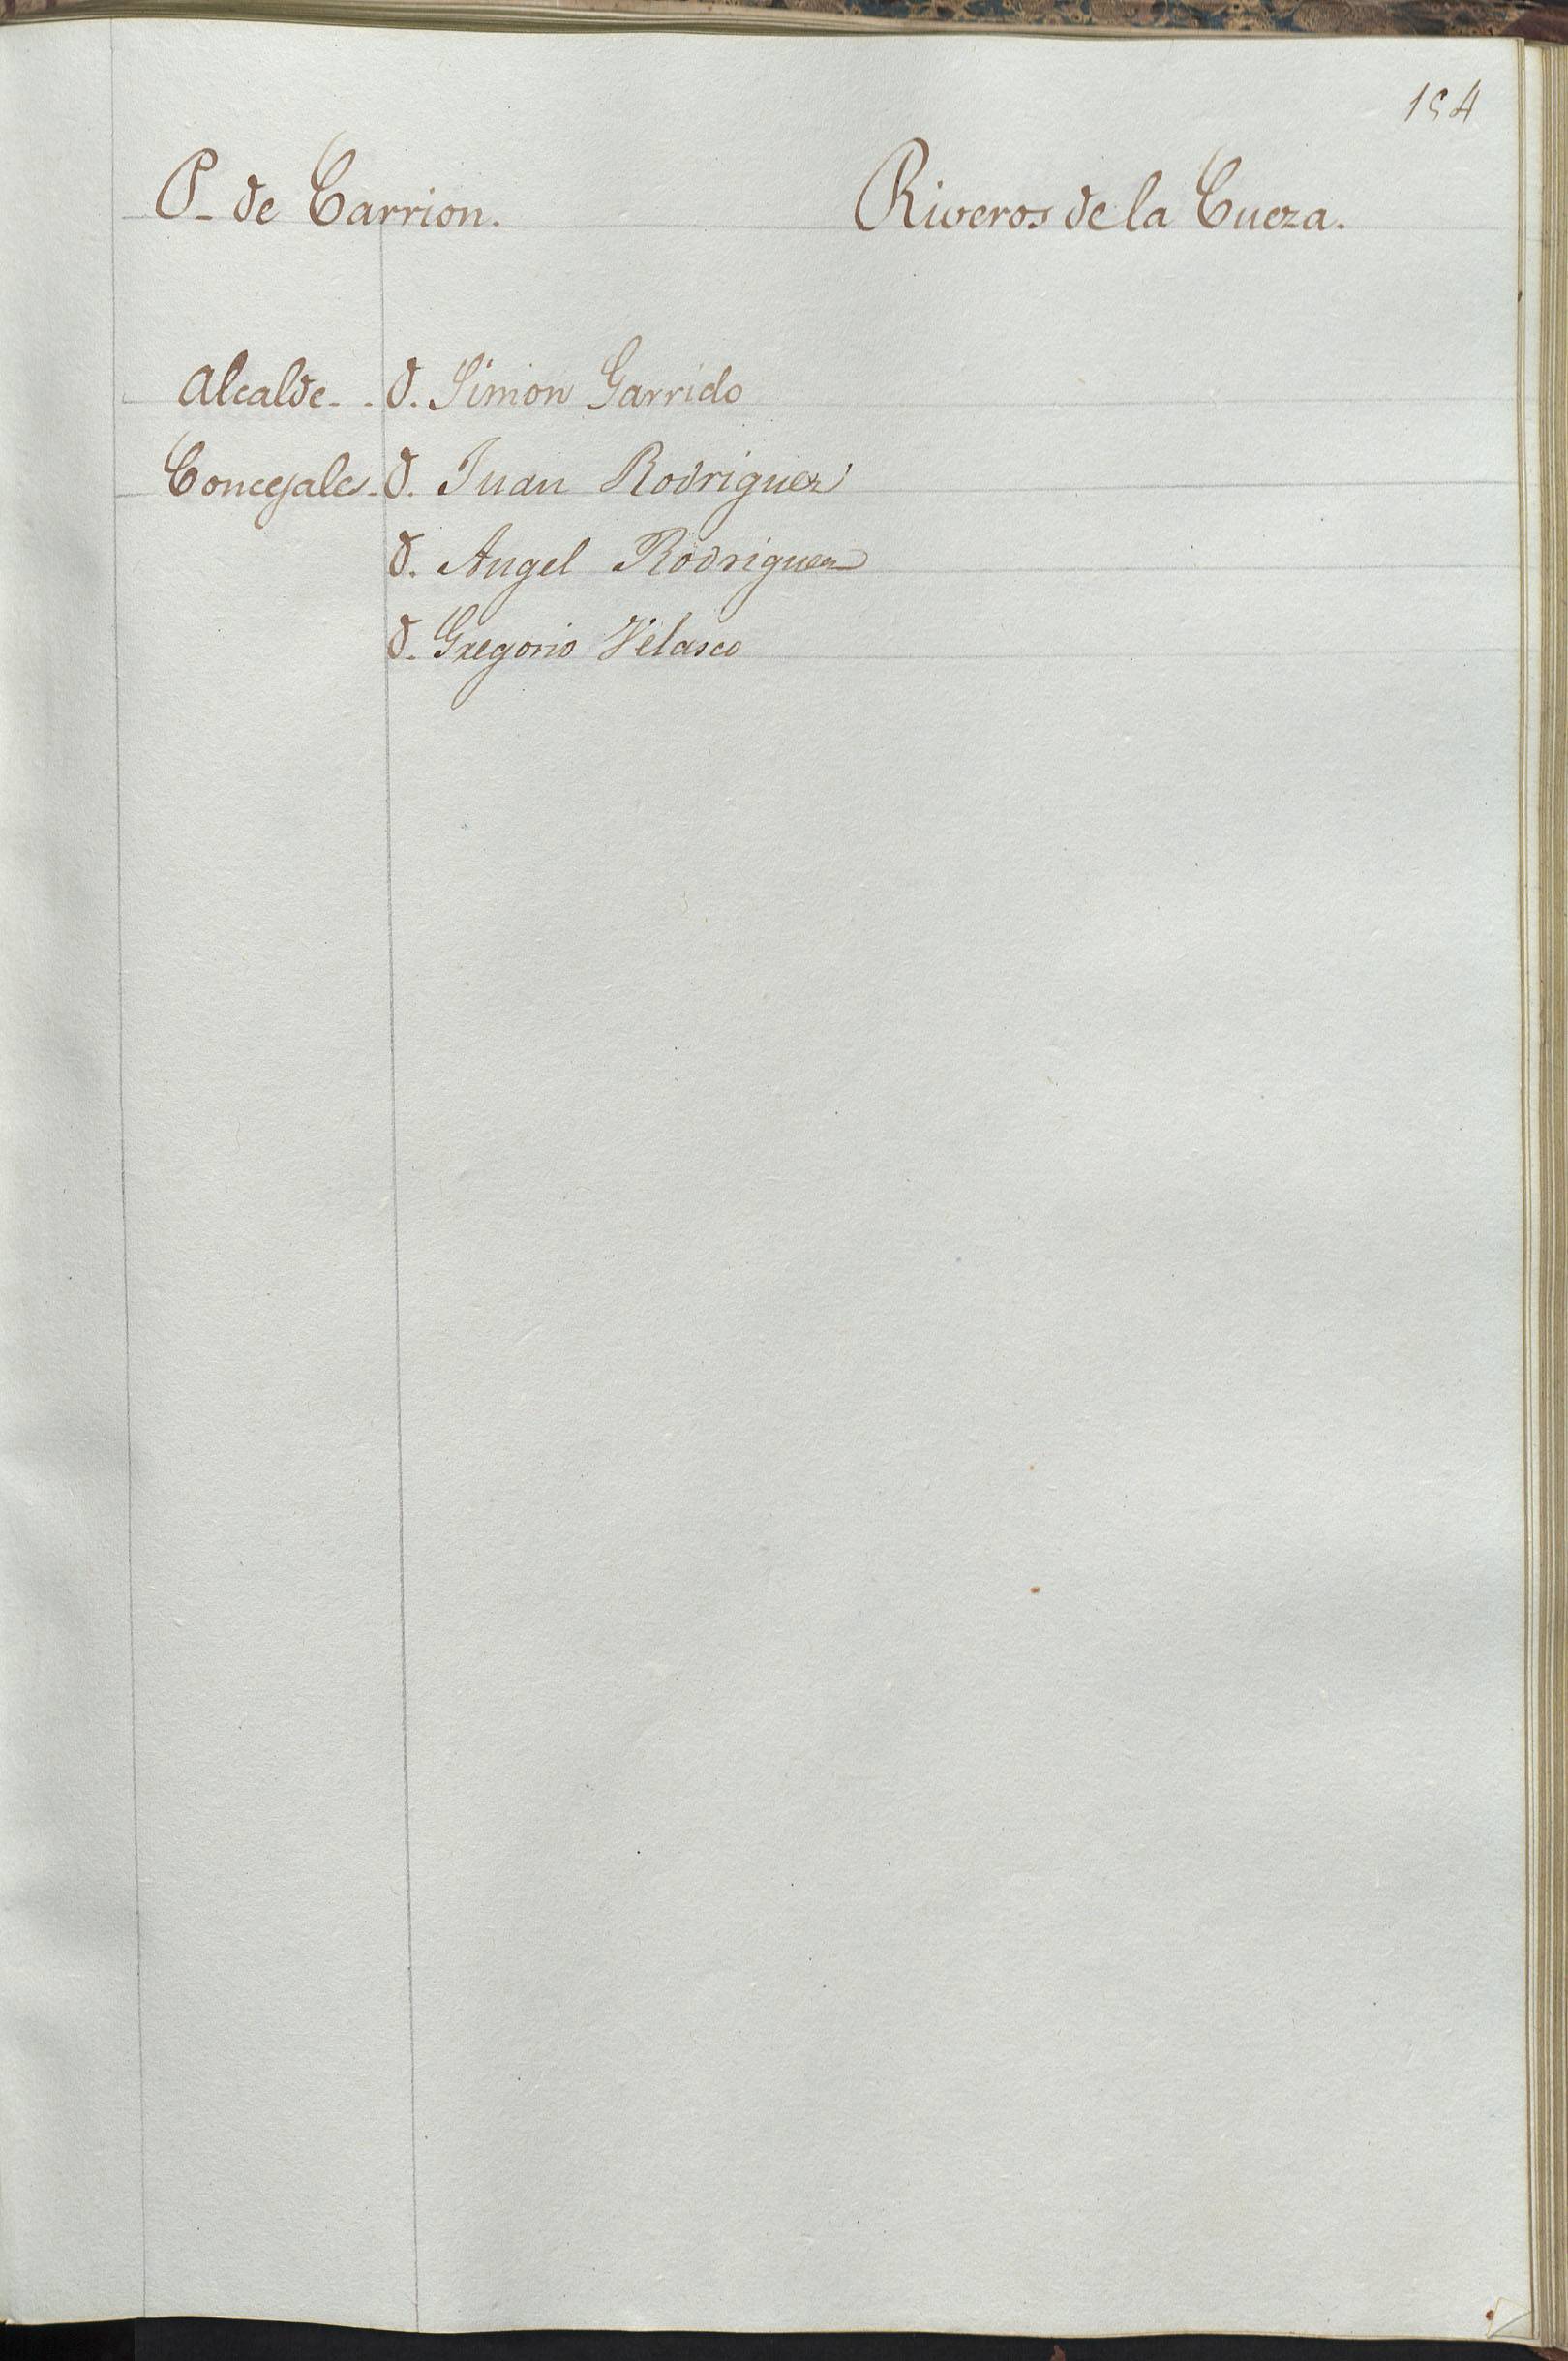 154
P. de Carrion. Riveros de la Cueza.
Alcalde - - D. Simon Garrido
Concejales - D. Juan Rodriguez
D. Angel Rodriguez
D. Gregorio Velasco